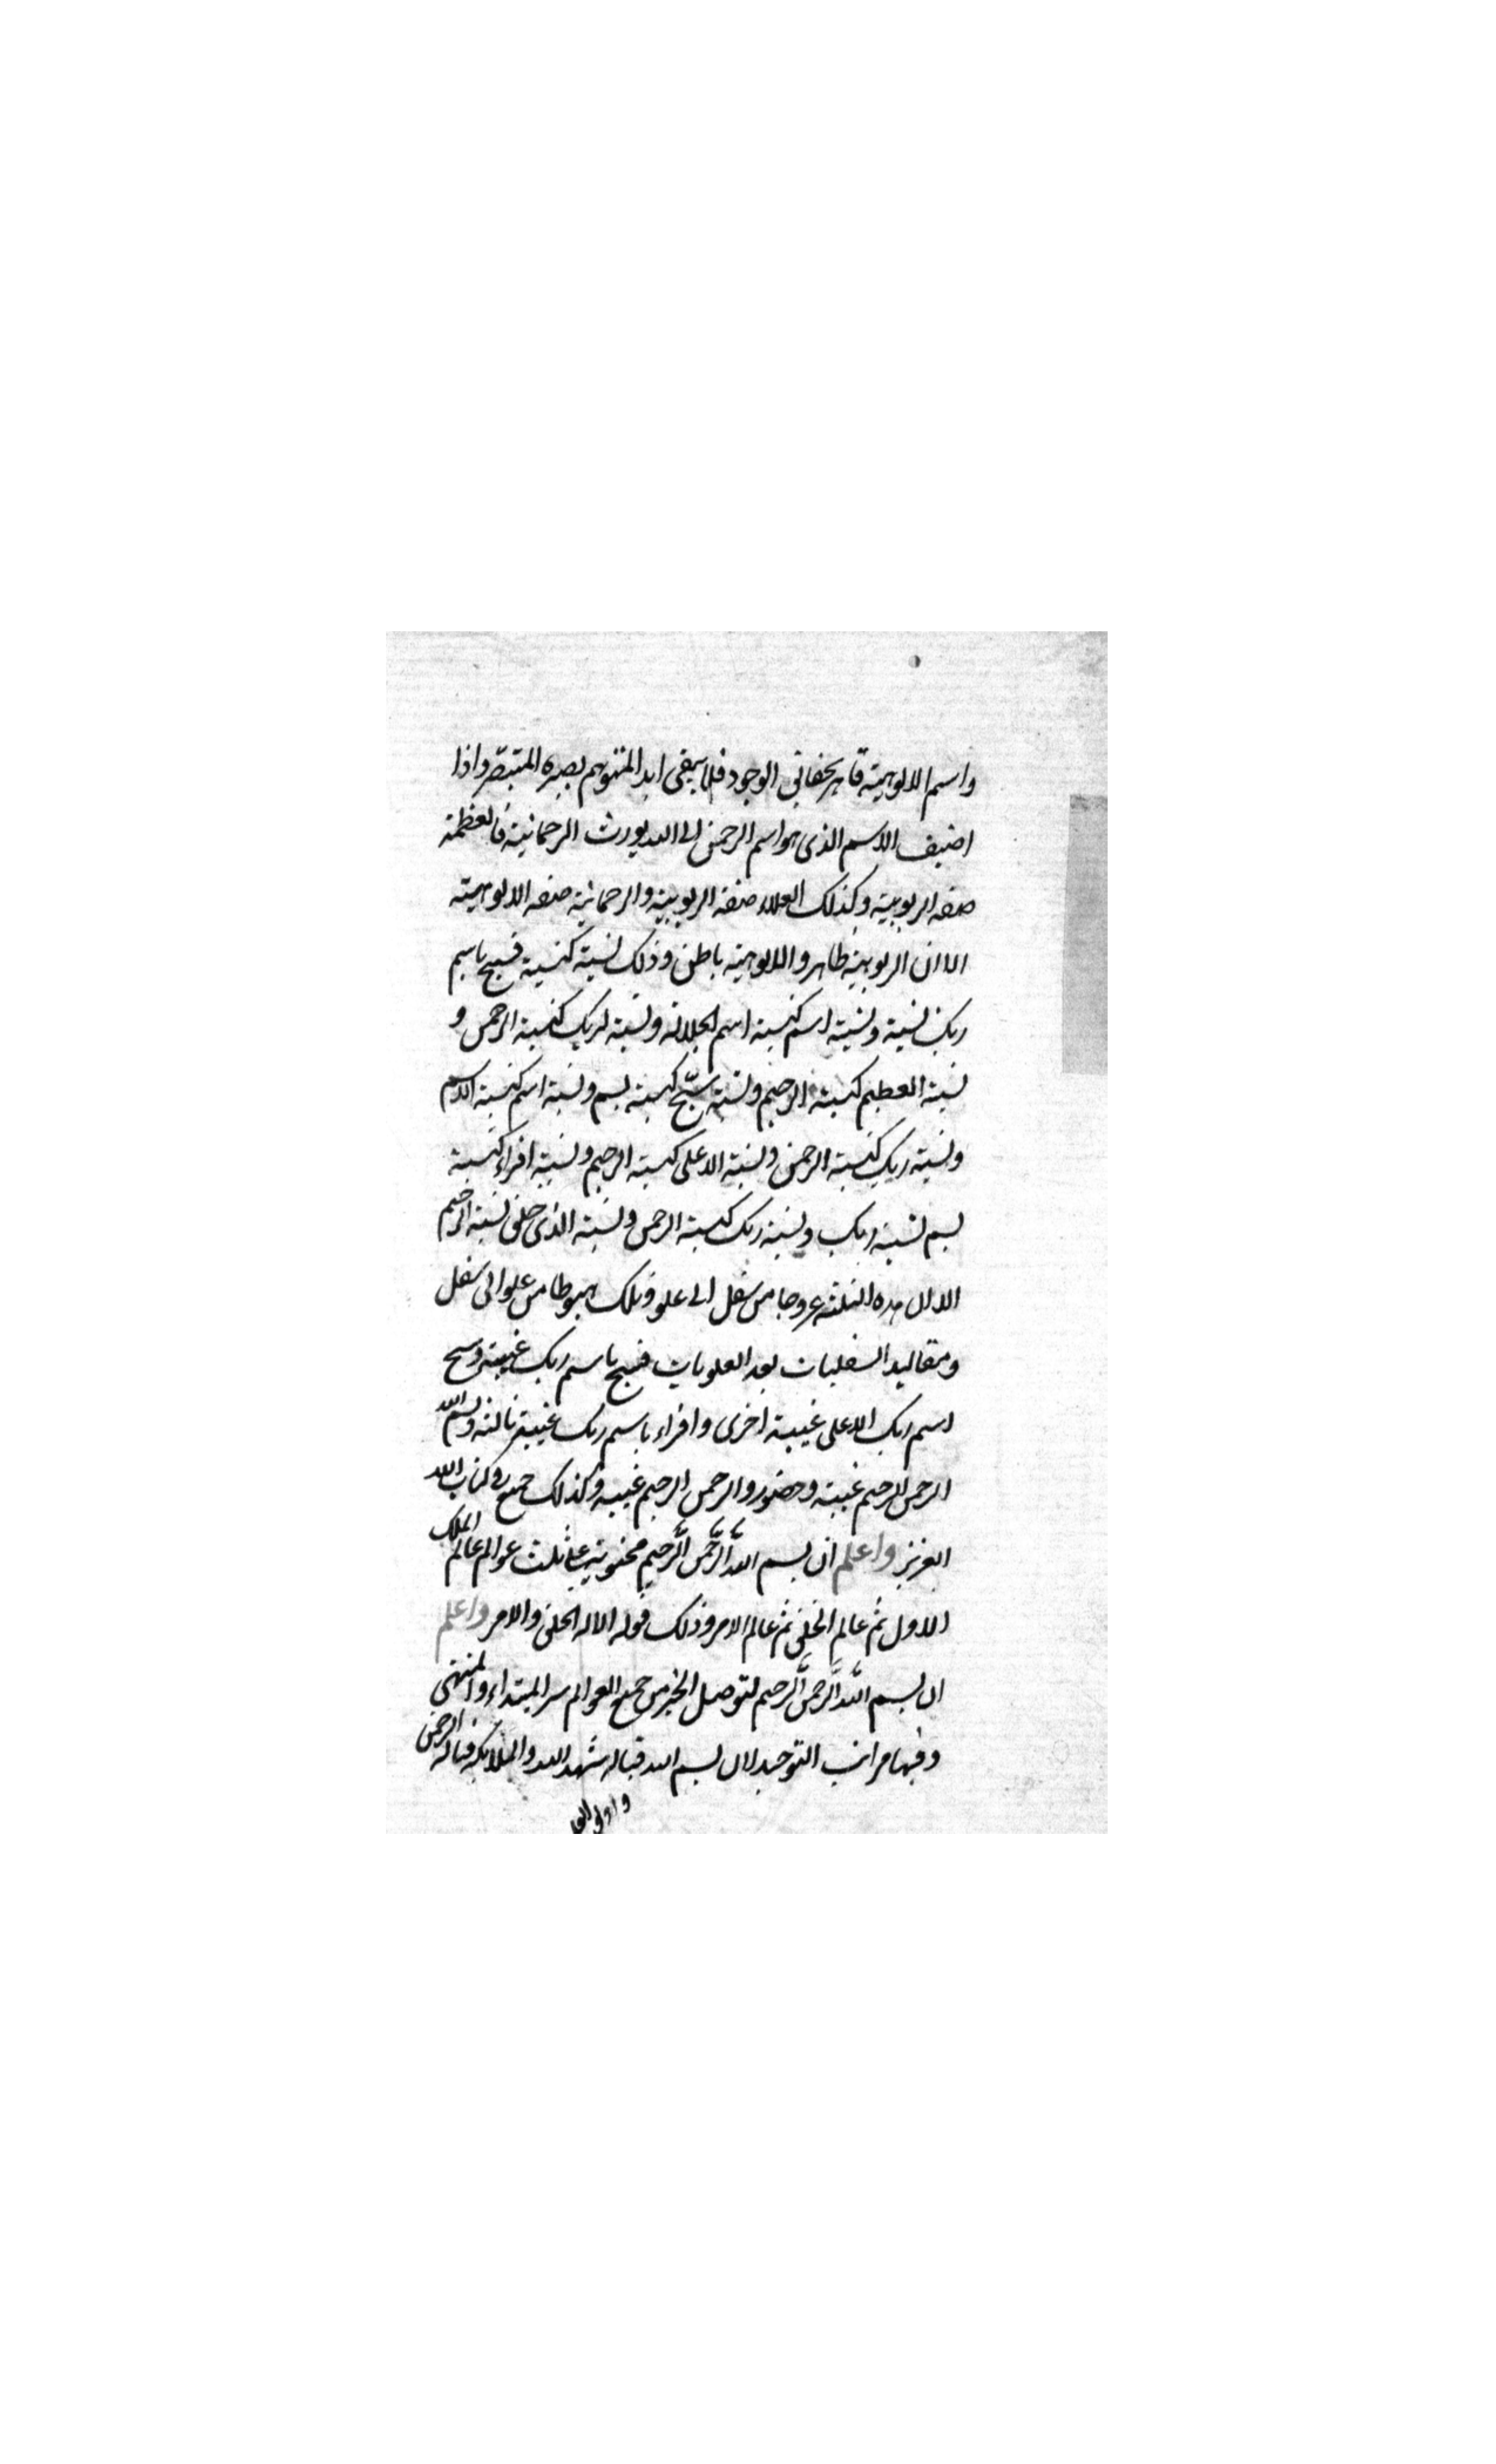 واسم الالوهية قاهر بحقايق الوجود فلا يبقى ابدا لمتوهم بصيره المتبصر واذا
اضيف الاسم الذى هو اسم الرحمن الى الله يورث الرحمانية فالعظمة
صفه الربوبية وكذلك العلاء صفة الربوبية والرحمانية صفه الالوهية
الا ان الربوبية ظاهر والالوهية باطن وذلك نسبة كنسبة فسبح باسم
ربك نسبة ونسبة اسم كنسبة اسم الجلالة ونسبة لربك كنسبة الرحمن و
نسبة العظيم كنسبة الرحيم ونسبة سبّح كنسبة بسم ونسبة اسم كنسبة الاسم
ونسبة ربك كنسبة الرحمن ونسبة الاعلى كنسبة الرحيم ونسبة اقراء كنسبة
بسم نسبة ربك ونسبة ربك كنسبة الرحمن ونسبة الذى خلق نسبة الرحيم
الا ان هذه الثلثة عروجا من سفل الى علو وتلك هبوطا من علو الى سفل
ومقاليد السفليات بعد العلويات فسبح باسم ربك غيبة وسبح
اسم ربك الاعلى غيبة اخرى واقراء باسم ربك غيبة ثالثة وبسم الله
الرحمن الرحيم غيبة وحضور والرحمن الرحيم غيبة وكذلك جميع فى كتاب الله
العزيز واعلم ان بسم الله الرَّحمن الرَّحيم محتوية على ثلث عوالم عالم الملك
الاول ثم عالم الخلق ثم عالم الامر وذلك قوله الا له الخلق والامر واعلم
ان بسم الله الرَّحمن الرَّحيم لتوصل الخير من جميع العوالم سر المبتداء والمنتهى
وفيها مراتب التوحيد لان بسم الله قباله شهد الله والملائكة قباله الرحمن
واولو العلم